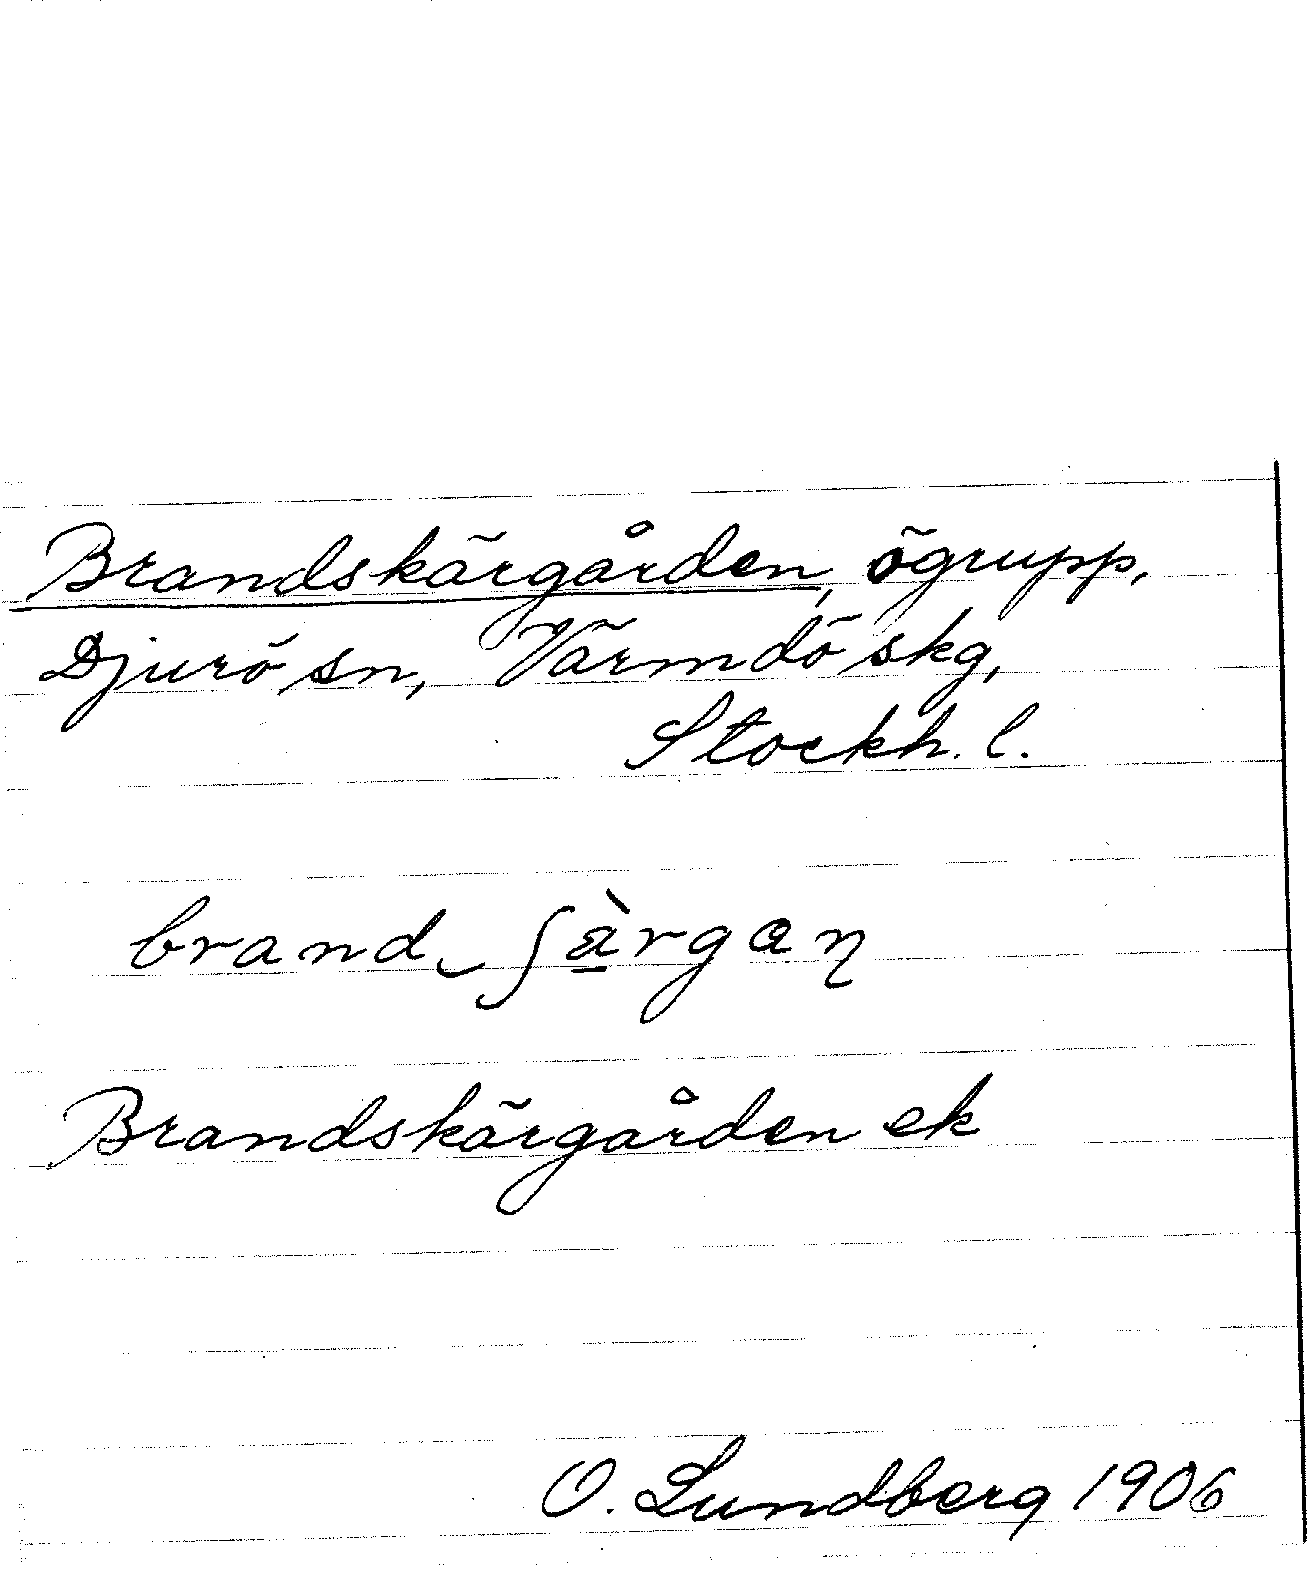 Brandskärgården, ögrupp,
Djurö sn, Värmdö skg,
Stockh. l.
brand ʃà̱rgaɳ
Brandskärgården ek
O. Lundberg 1906